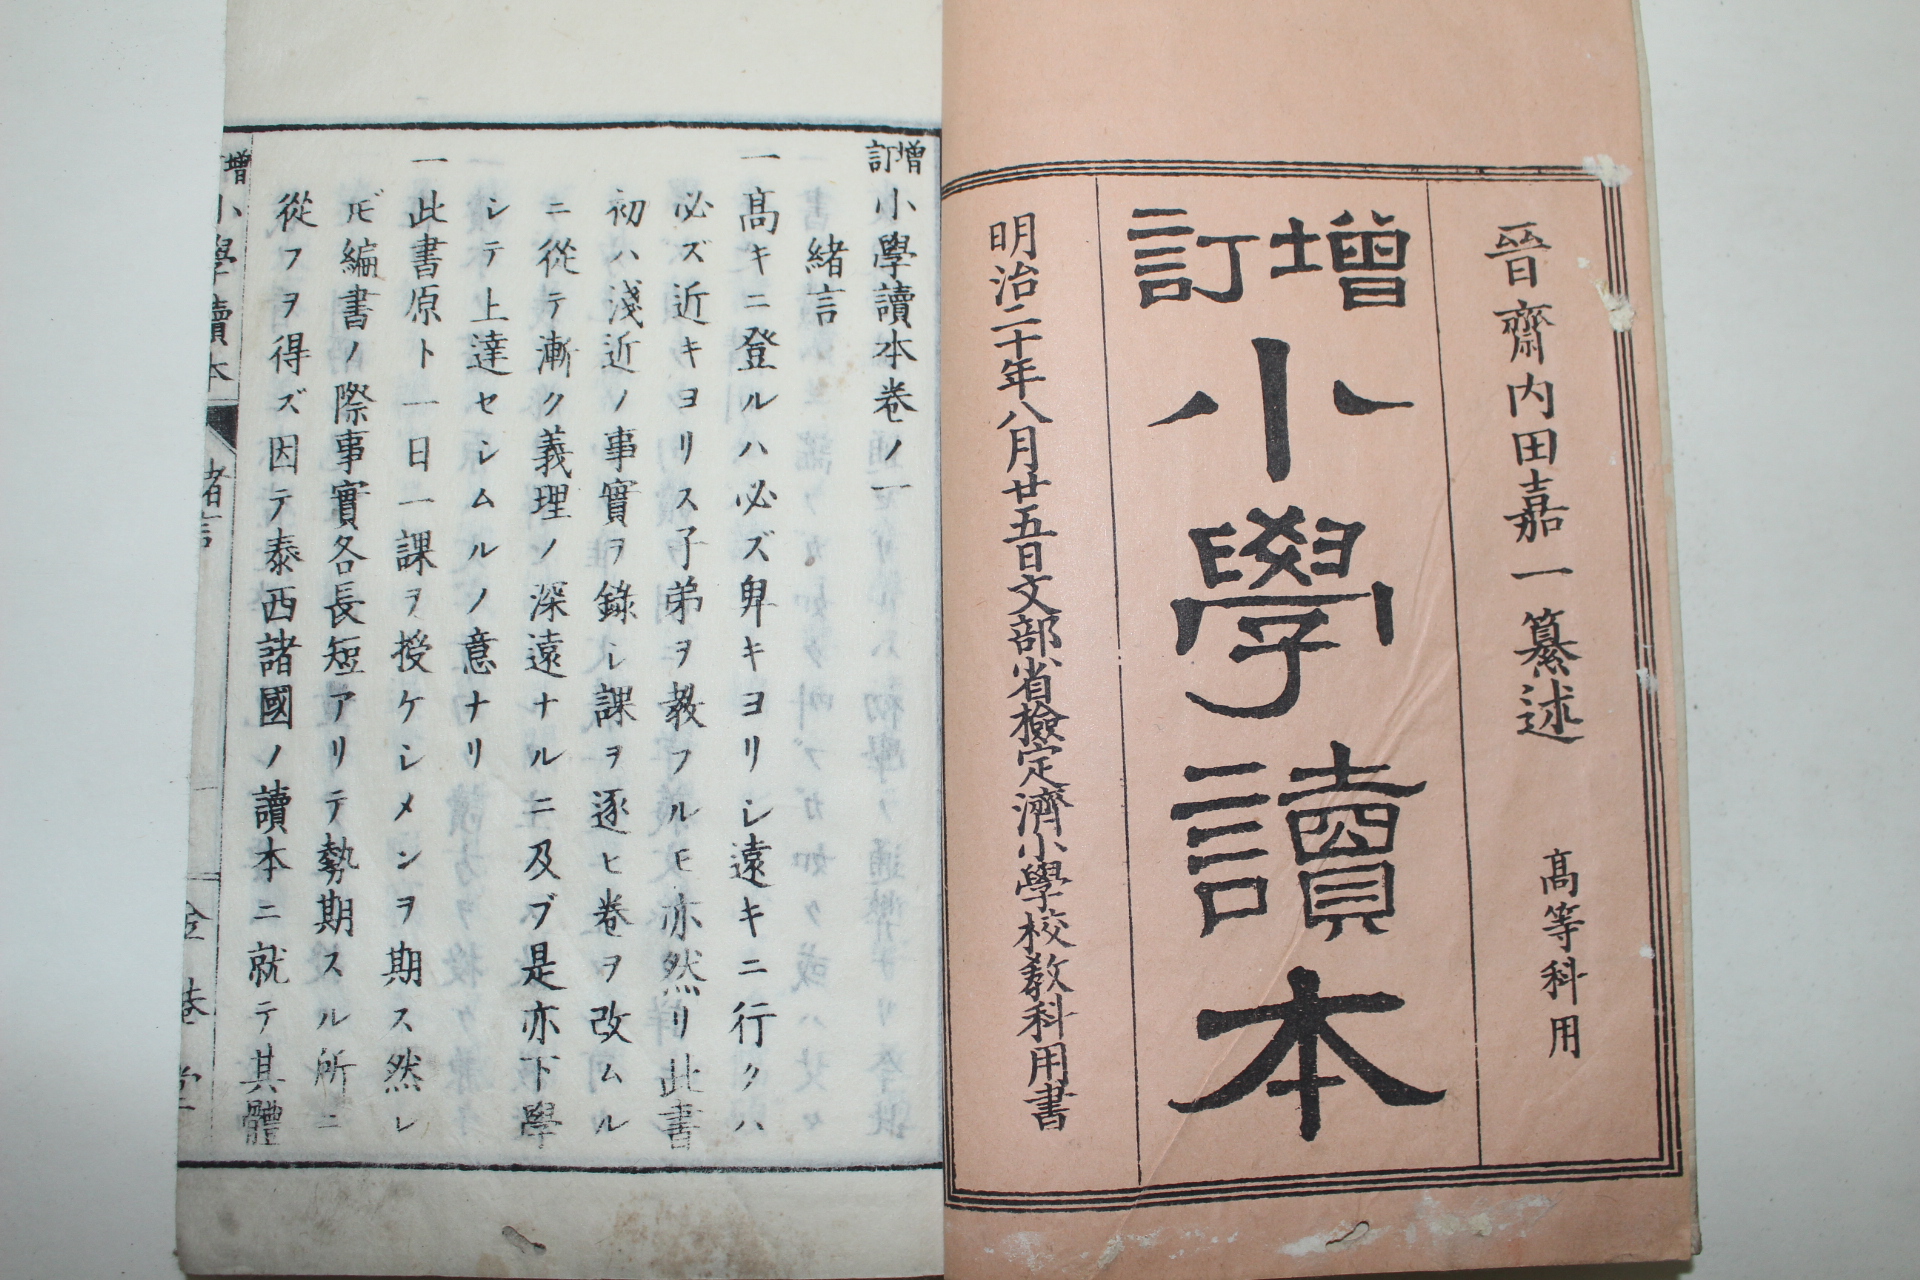 晉齋內田嘉一纂述
高等科用
增訂
小學讀本
明治二十年八月廿五日文部省檢定濟小學校教科用書
增訂小學讀本卷ノ一
緒言
一髙キニ登ルハ必ズ卑キヨリシ遠キニ行クハ
必ズ近キヨリス子弟ヲ敎フルモ亦然リ此書
初ハ淺近ノ事實ヲ錄シ課ヲ逐ヒ卷ヲ改ムル
ニ從テ漸ク義理ノ深遠ナルニ及ブ是亦下學
シテ上達セシムルノ意ナリ
一此書原ト一日一課ヲ授ケシメンヲ期ス然レ
𪜈編書ノ際事實各長短アリテ勢期スル所ニ
從フヲ得ズ因テ泰西諸國ノ讀本ニ就テ其體
增
小學讀本
緒言